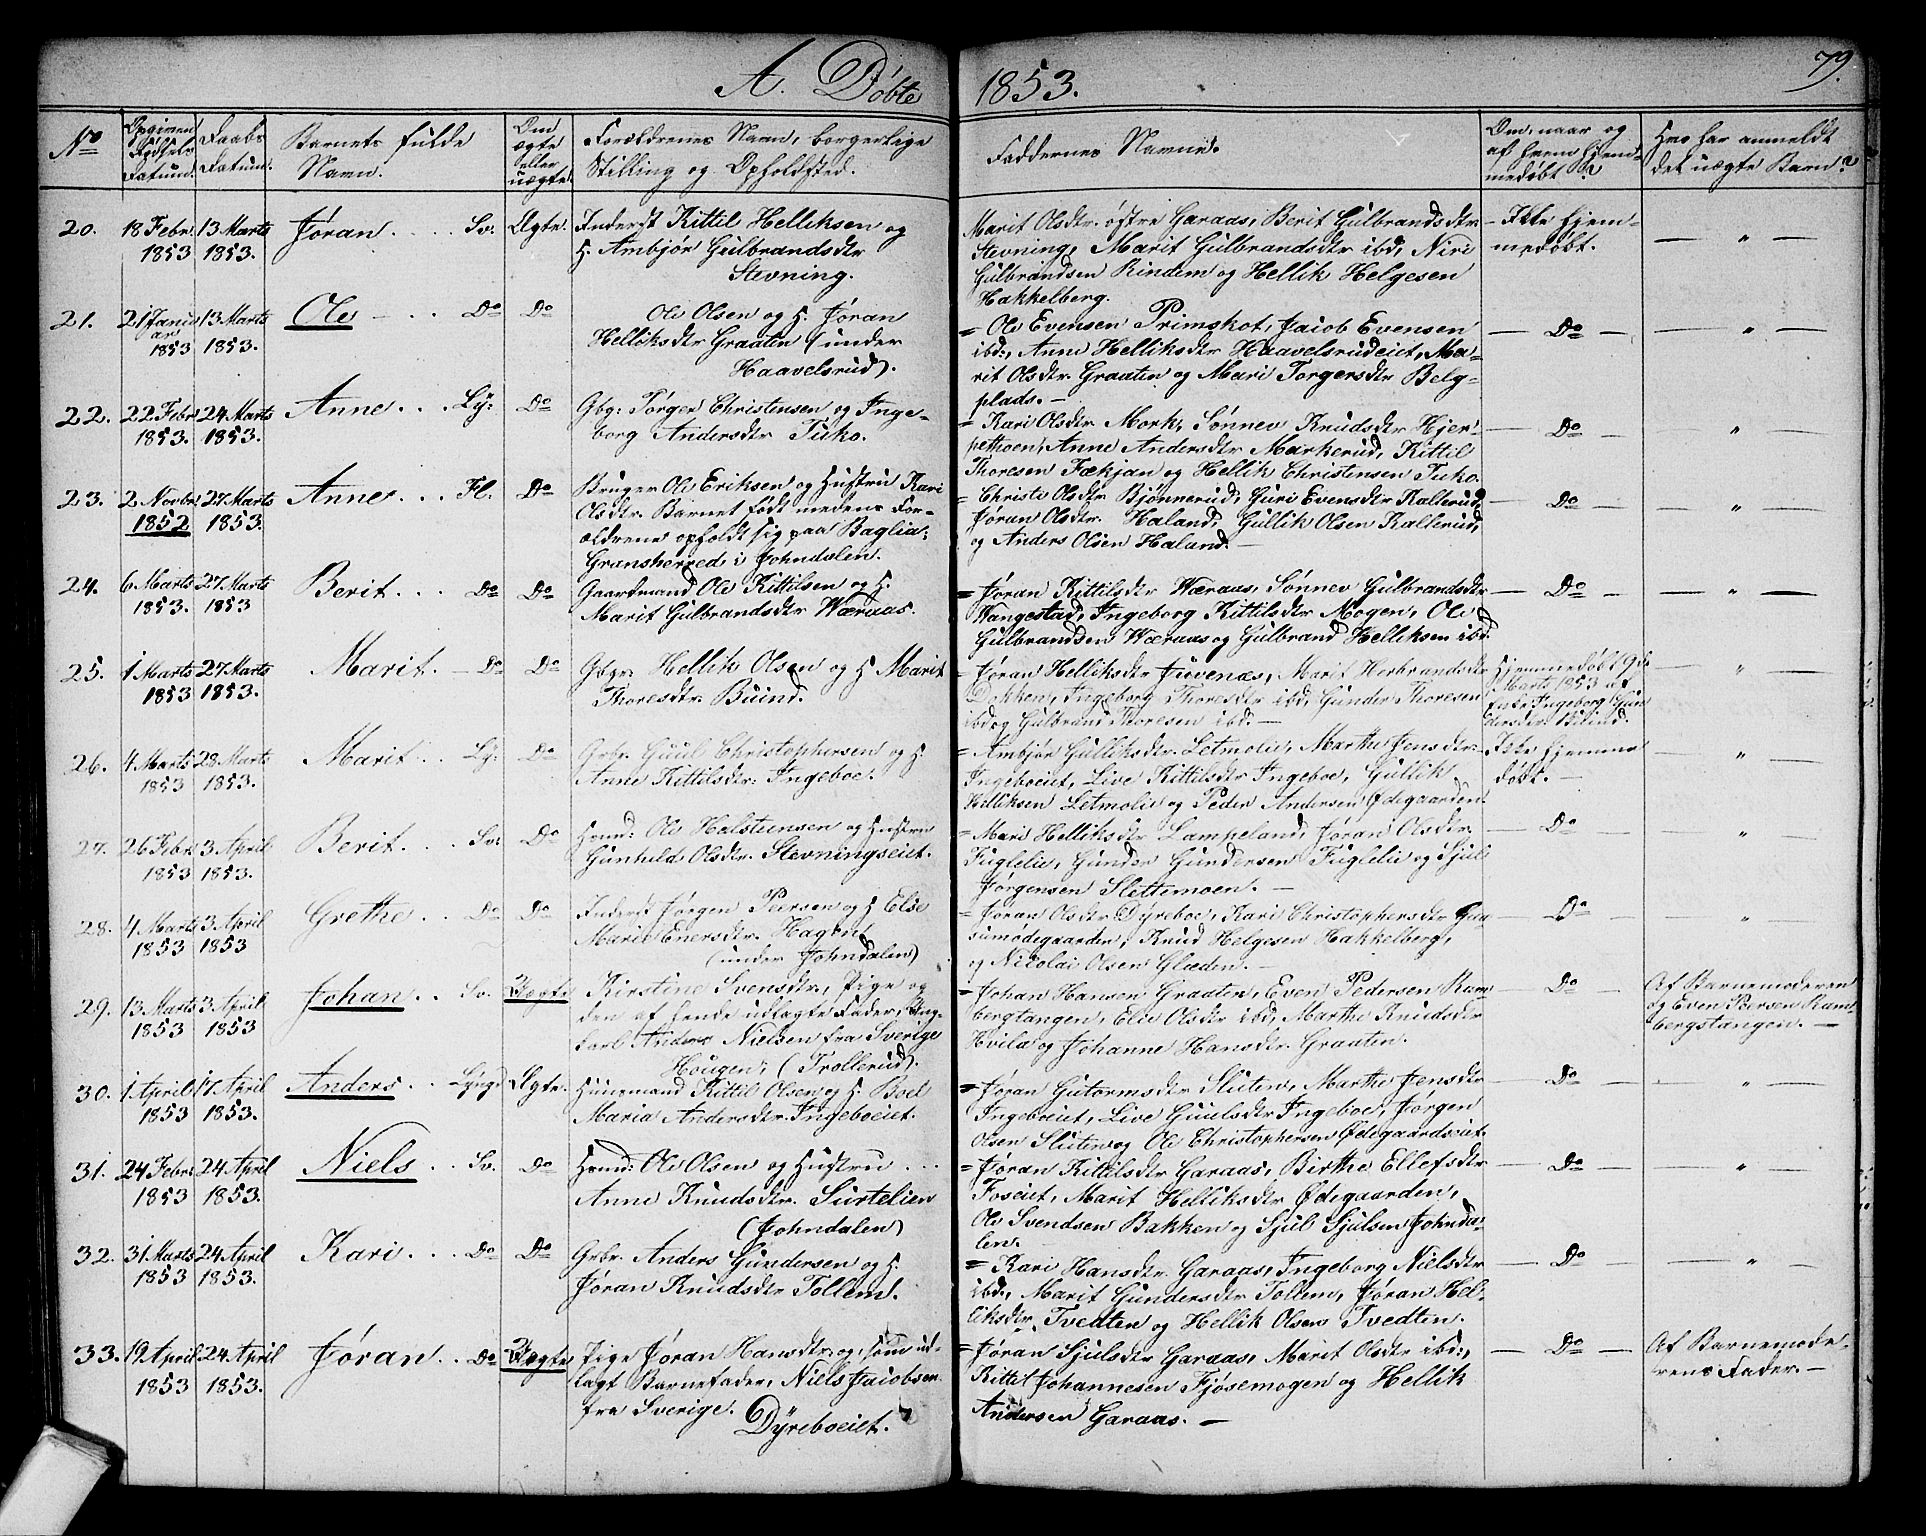 A. Döbte 1853. 79.
No
Opgiven Fødsels Datum.
Daabs Datum.
Barnets fulde Navn.
Om ægte eller uægte.
Forældrenes Navn, borgerlige Stilling og Opholdsted.
Faddernes Navne.
Om, naar og af hvem hjemmedøbt?
Hvo har anmeldt det uægte Barn?
20. 18 Febr. 1853 13 Marts 1853. Jøran . . . . Sv. Ægte.
Inderst Kittil Helliksen og
H. Ambjør Gulbrandsdtr
Stevning.
Marit Olsdtr. østre Garaas, Berit Gulbrandsdtr
Stevning, Marit Gulbrandsdtr ibd, Niri
Gulbrandsen Rindem og Hellik Helgesen
Hakkelberg.
Ikke hjem-
medøbt. — „ —
21. 21 Januar 1853 13 Marts 1853. Ole — . . Do Do
Ole Olsen og H. Jøran
Helliksdtr Graaten (under
Haavelsrud).
= Ole Evensen Primskot, Jacob Evensen
ibd:, Anne Helliksdtr Haavelsrudeiet, Ma-
rit Olsdtr. Graaten og Mari Torgersdtr Belg-
plads. —
— Do — — „ —
22. 22. Febr 1853. 24. Marts 1853. Anne . . . Ly: Do
Gbg: Torger Christensen og Inge-
borg Andersdtr Tuko.
= Kari Olsdtr Mork, Sønnev Knudsdtr Hjer-
pethoen, Anne Andersdtr Markerud, Kittil
Thoresen Fækjan og Hellik Christensen Tuko.
— Do — „ —
23. 2. Novbr 1852 27 Marts 1853. Anne . . . Fl. Do
Bruger Ole Eriksen og Hustru Kari
Olsdtr. Barnet født medens For-
ældrene opholdt sig paa Baglia:
Gransherred i Johndalen.
= Christi Olsdtr Bjønnerud, Guri Evensdtr Kallerud,
Jøran Olsdtr. Haland, Gullik Olsen Kallerud,
og Anders Olsen Haland. —
— Do — — „ —
24. 6 Marts 1853. 27. Marts 1853 Berit . . . Do Do
Gaardmand Ole Kittilsen og H.
Marit Gulbrandsdtr Wæraas.
= Jøran Kittilsdtr Wæraas, Sønnev Gulbrandsdtr
Wangestad, Ingeborg Kittilsdtr Mogen, Ole
Gulbrandsen Wæraas og Gulbrand Helliksen ibd.
— Do — — „ —
25. 1 Marts 1853 27 Marts 1853. Marit. — Do Do
Gbgr: Hellik Olsen og H Marit
Thoresdtr. Buind.
= Jøran Helliksdtr Juvenæs, Marit Herbrandsdtr
Bakken, Ingeborg Thoresdtr ibd, Gunder Thoresen
ibd og Gulbrand Thoresen ibd: —
Hjemmedøbt 9de
Marts 1853 af
Enke Ingeborg Gun-
dersdtr Buind. — „ —
26. 4 Marts 1853 28 Marts 1853. Marit . . Ly: Do
Grbr. Guul Christophersen og H
Anne Kittilsdtr. Ingeboe.
= Ambjør Gulliksdtr. Letmolie, Marthe Jensdtr.
Ingeboeiet, Live Kittilsdtr Ingeboe, Gullik
Helliksen Letmolie og Peder Andersen Ødegaarden.
Ikke hjemme
døbt. — — „ —
27. 26 Febr. 1853 3 April 1853. Berit. . . Sv. Do
Hmd: Ole Halsteinsen og Hustru
Gunhild Olsdtr. Stevningseiet.
= Mari Helliksdtr Lampeland, Jøran Olsdtr.
Fuglelie, Gunder Gundersen Fuglelie og Sjul
Jørgensen Slettemoen. —
— Do — — „ —
28. 4 Marts 1853 3 April 1853 Grethe . . Do Do
Inderst Jørgen Peersen og H Else
Marie Enersdtr. Hagen,
(under Johndalen)
= Jøran Olsdtr Dyreboe, Kari Christophersdtr Gaa-
sumødegaarden, Knud Helgesen Hakkelberg,
og Nicolai Olsen Glæden. —
— Do — — „ —
29. 13 Marts 1853 3 April 1853 Johan . . Sv. Uægte
Kirstine Svensdtr, Pige og
den af hende udlagte Fader, Ung-
karl Anders Nielsen fra Sverige
Hougen, (Trollerud).
= Johan Hansen Graaten, Even Pedersen Ram
bergtangen, Elie Olsdtr ibd, Marthe Knudsdtr
Hvila og Johanne Hansdtr. Graaten.
— Do —
Af Barnemoderen
og Even Peersen Ram-
bergstangen. —
30. 1 April 1853 17 April 1853. Anders . . Lyngd Ægte.
Huusmand Kittil Olsen og H. Boel
Maria Andersdtr Ingeboeiet.
= Jøran Gutormsdtr Sluten, Marthe Jensdtr
Ingeboeiet, Live Guulsdtr Ingeboe, Jørgen
Olsen Sluten og Ole Christophersen Ødegaardseiet.
— Do — „ —
31. 24 Febr. 1853 24 April 1853. Niels . . Sv. Do
Hmd: Ole Olsen og Hustru . . .
Anne Knudsdtr. Surtelien
(Johndalen)
= Jøran Kittilsdtr Garaas, Birthe Ellefsdtr
Foseiet, Marit Helliksdtr Ødegaarden,
Ole Svendsen Bakken og Sjul Sjulsen Johnda-
len.
— Do — „ —
32. 31 Marts 1853 24 April 1853. Kari . . . Do Do
Grbr. Anders Gundersen og H.
Jøran Knudsdtr Tollem.
= Kari Hansdtr Garaas, Ingeborg Nielsdtr
ibd:, Marit Gundersdtr Tollem, Jøran Hel-
liksdtr. Tvedten og Hellik Olsen Tvedten.
— Do — — „ —
33. 19 April 1853 24 April 1853. Jøran . . Do Uægte
Pige Jøran Hansdtr: og som ud-
lagt Barnefader, Niels Jacobsen
fra Sverige.
Dyreboeiet.
= Jøran Sjulsdtr Garaas, Marit Olsdtr ibd:,
Kittil Johannesen Fjøsemogen og Hellik
Andersen Garaas. —
— Do —
Af Barnemode-
rens Fader. —